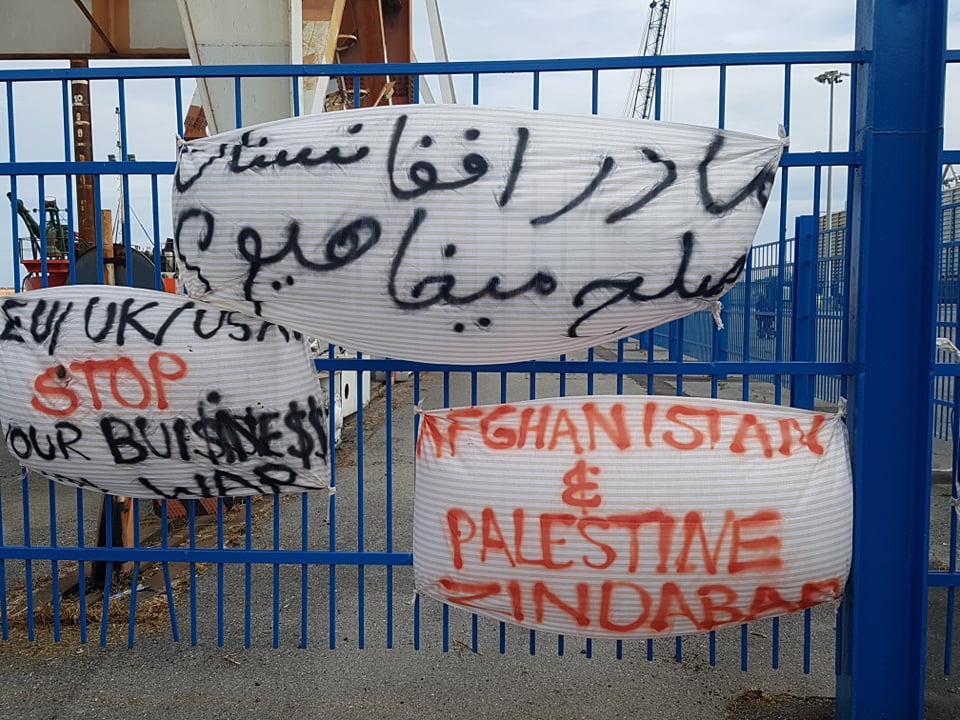 ما در افغانستان
صلح میخاهیم
EU/UK/USA
STOP
YOUR BUI$INE$$
WAR
AFGHANISTAN
&
PALESTINE
ZINDABAD